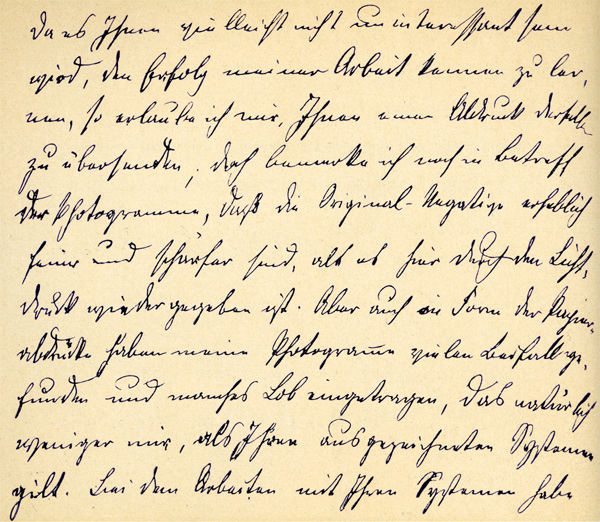 Da es Ihnen vielleicht nicht uninteressant sein
wird, den Erfolg meiner Arbeit kennen zu ler-
nen, so erlaube ich mir, Ihnen einen Abdruck derselben
zu übersenden, doch bemerke ich noch in Betreff
der Photogramme, daß die Original-Negative erheblich
feiner und schärfer sind, als es hier durch den Licht-
druck wiedergegeben ist. Aber auch in Form der Papier-
abdrücke haben meine Photogramme vielen Beifall ge-
funden und manches Lob eingetragen, das natürlich
weniger mir, als Ihren ausgezeichneten Systemen
gilt. Bei dem Arbeiten mit Ihren Systemen habe